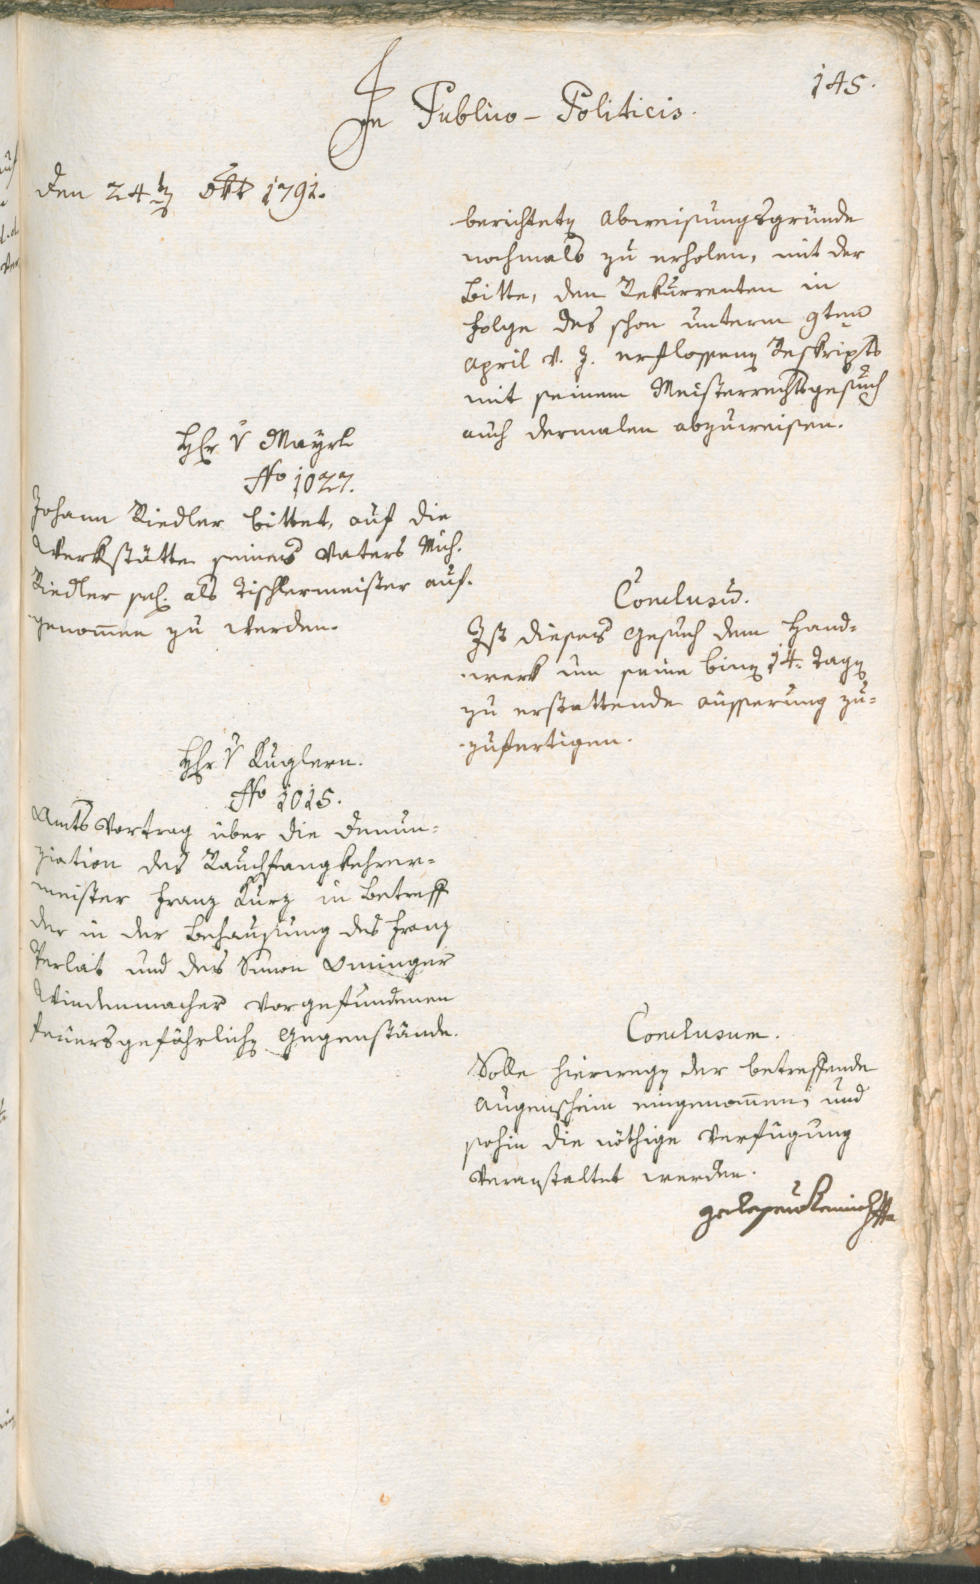 145.
In Publico-Politicis.
Den 24ten Okt 1791.
berichteten Abweisungsgründe
nochmals zu erholen, mit der
Bitte, den Rekurrenten in
Folge des schon unterm 9ten
April v. J. erflossenen Reskripts
mit seinem Meisterrechtsgesuch
auch dermalen abzuweisen.
Hr v Mayrl
No 1027.
Johann Riedler bittet, auf die
Werkstätte seines Vaters Mich.
Riedler sel. als Tischlermeister auf-
genommen zu werden.
Conclusum.
Ist dieses Gesuch dem Hand-
werk um seine binnen 14. Tagen
zu erstattende Äusserung zu-
zufertigen.
Hr v Kuglern.
No 1015.
Amts Vortrag über die Denun-
ziation des Rauchfangkehrer-
meister Franz Kurz in Betreff
der in der Behausung des Franz
Verlat und des Simon Ominger
Windenmacher vorgefundenen
feuersgefährlichen Gegenstände.
Conclusum.
Solle hierwegen der betreffende
Augenschein eingenommen, und
sohin die nöthige Verfügung
veranstaltet werden.